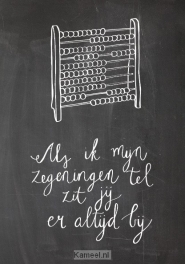 Als ik mijn
zegeningen tel
zit jij
er altijd bij
Kameel.nl